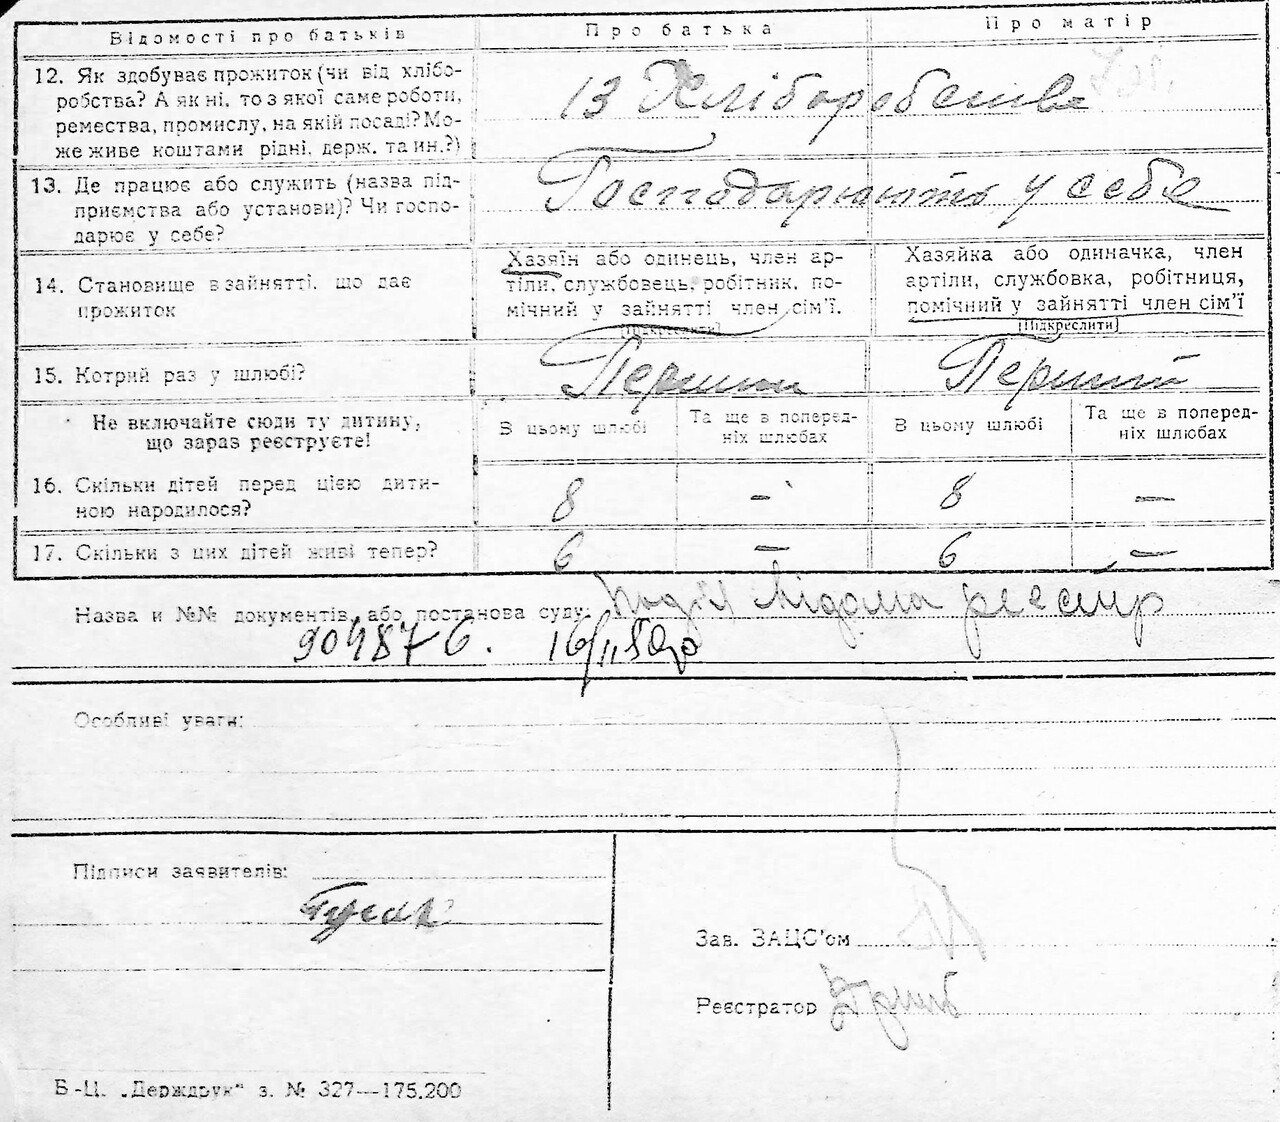 Відомості про батьків
Про батька
Про матір
12. Як здобуває прожиток (чи від хлібо-
робства? А як ні, то з якої саме роботи,
ремества, промислу, на якій посаді? Мо-
же живе коштами рідні, держ. та ин.?)
Із Хліборобства
13. Де працює або служить (назва під-
приємства або установи)? Чи госпо-
дарює у себе?
Господарюють у себе
14. Становище в зайнятті, що дає
прожиток
Хазяїн або одинець, член ар-
тіли, службовець, робітник, по-
мічний у зайнятті член сім'ї.
[Підкреслити]
Хазяйка або одиначка, член
артіли, службовка, робітниця,
помічний у зайнятті член сім'ї
[Підкреслити]
15. Котрий раз у шлюбі?
Перший
Перший
Не включайте сюди ту дитину,
що зараз реєструєте!
В цьому шлюбі
Та ще в поперед-
ніх шлюбах
В цьому шлюбі
Та ще в поперед-
ніх шлюбах
16. Скільки дітей перед цією дити-
ною народилося?
8 — 8 —
17. Скільки з цих дітей живі тепер?
6 — 6 —
Назва и №№ документів, або постанова суду: Подія відома реєстр
904876.
Особливі уваги:
Підписи заявителів:
Зав. ЗАЦС'ом
Реєстратор
Б-Ц. „Держдрук" з. № 327—175.200